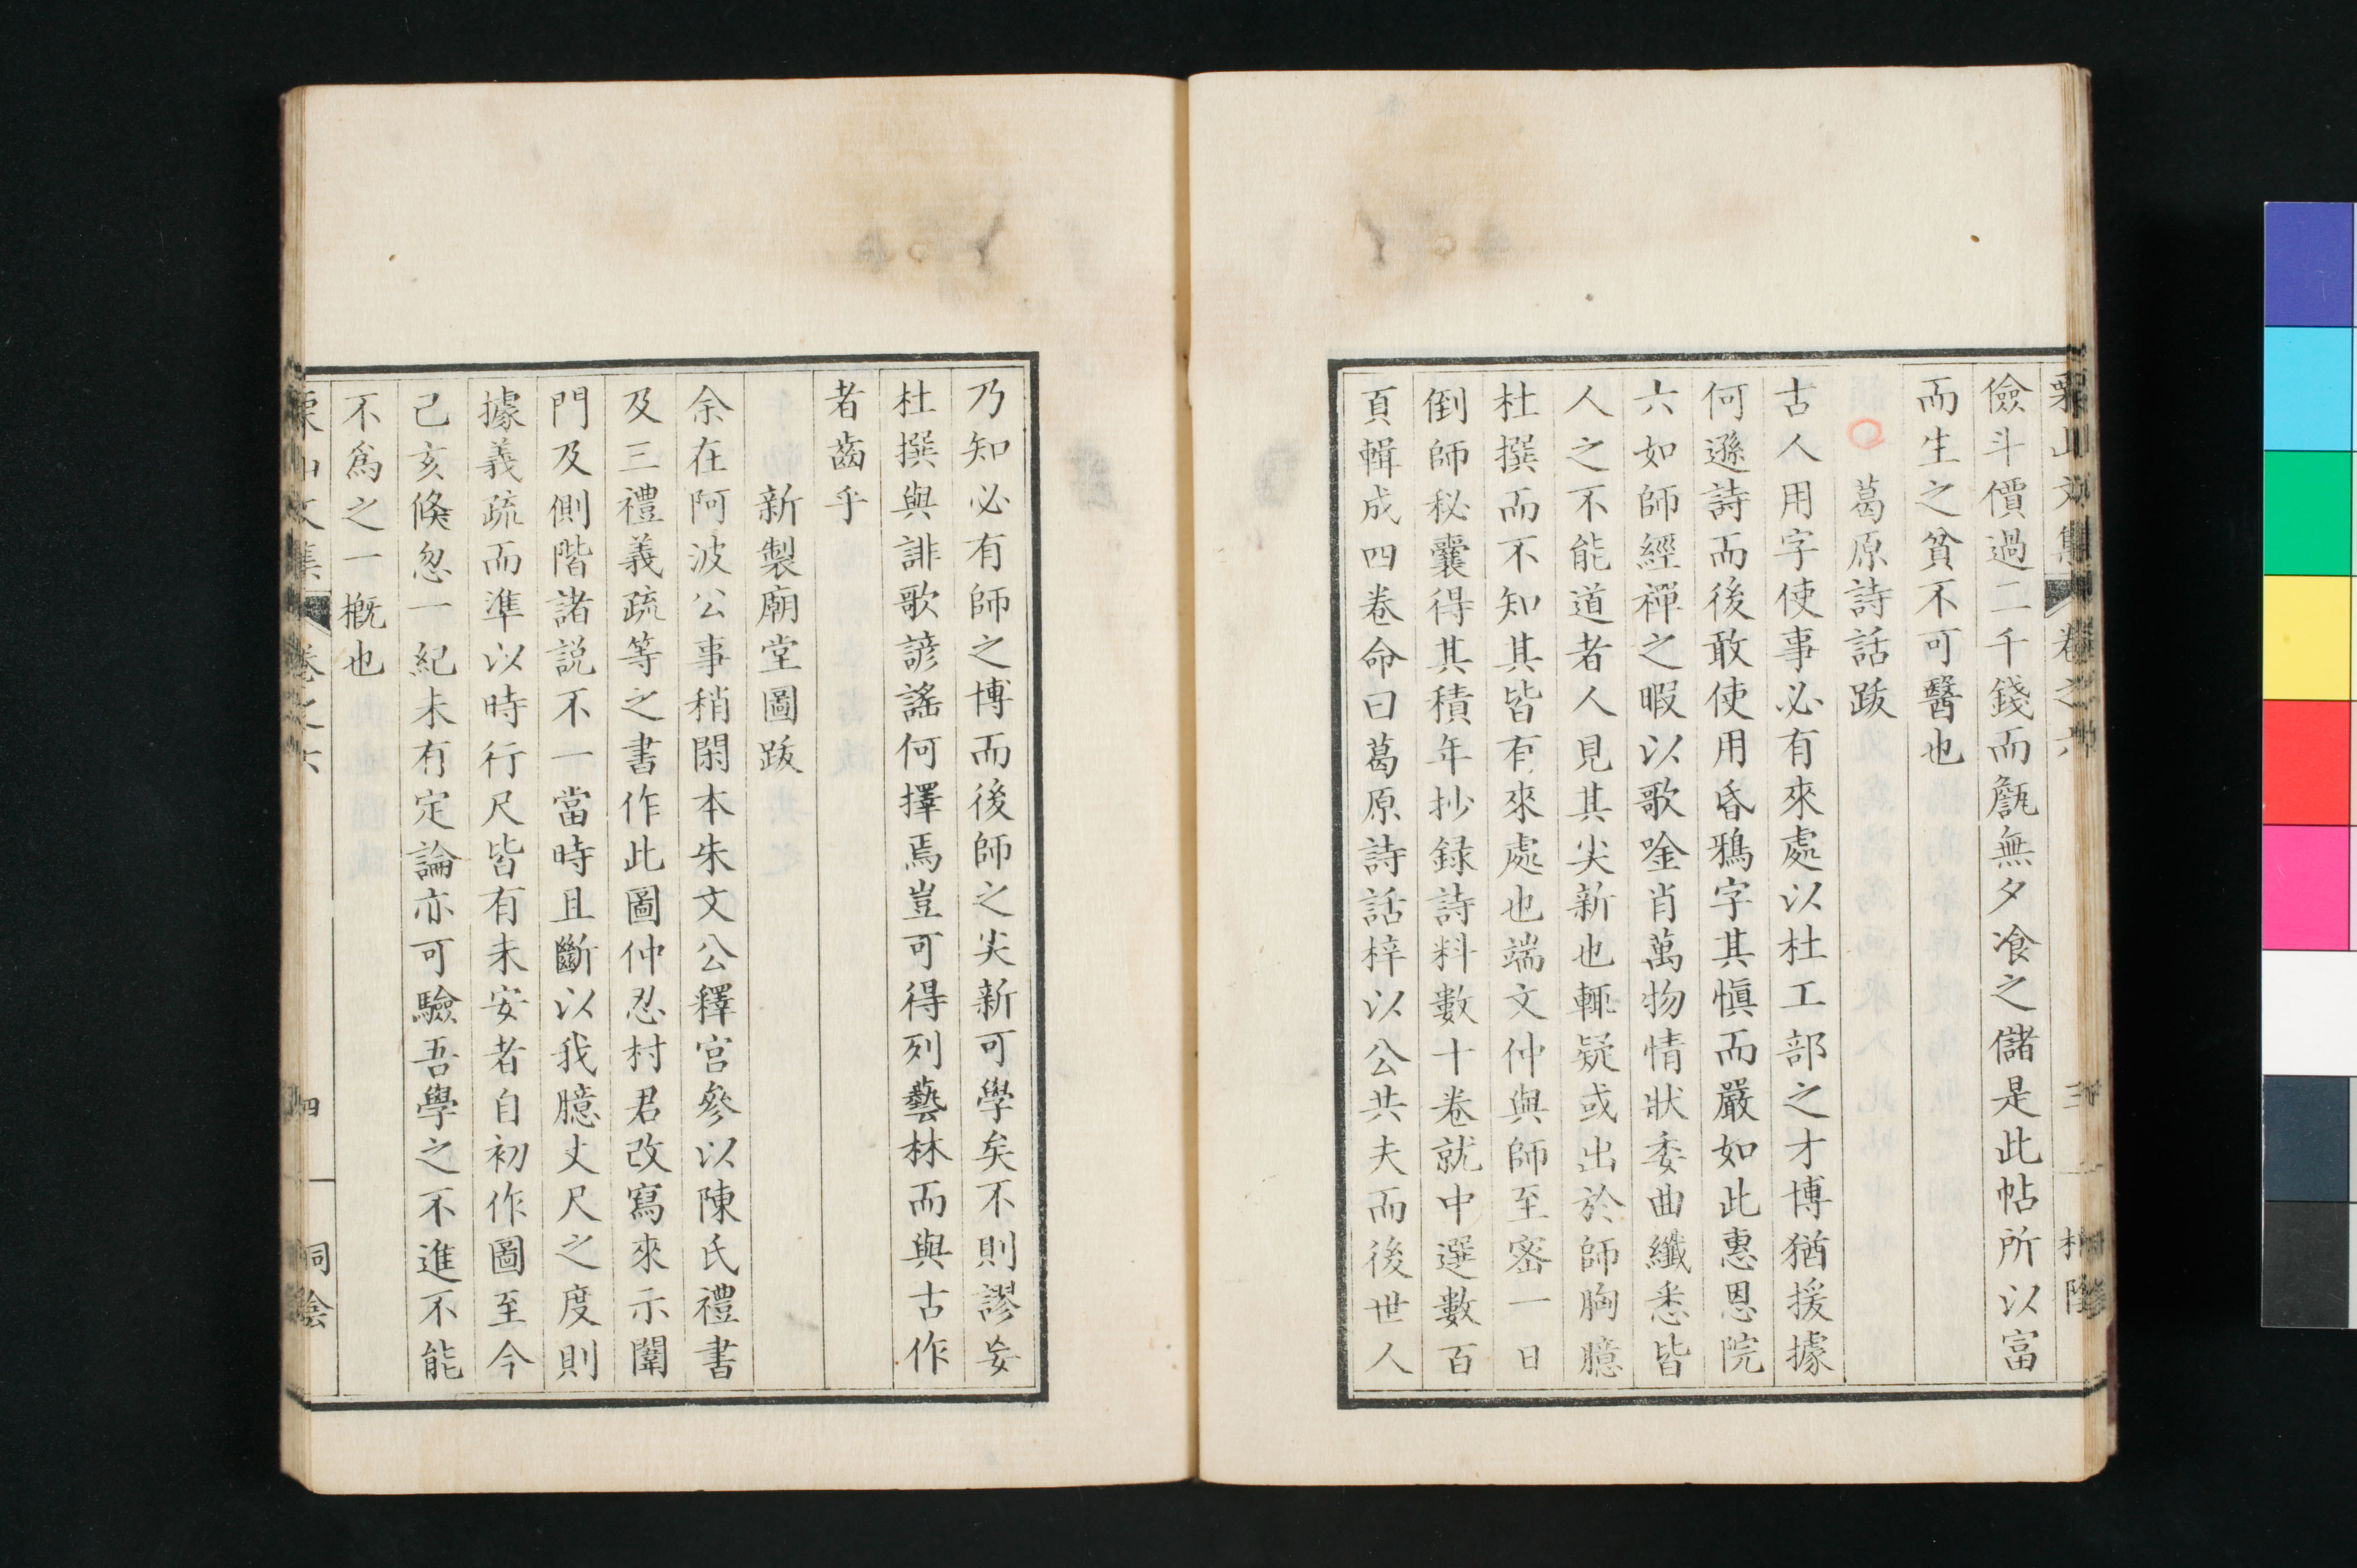 儉斗價過二千錢而甔無夕飡之儲是此帖所以富
而生之貧不可醫也
葛原詩話跋
古人用字使事必有來處以杜工部之才博猶援據
何遜詩而後敢使用昏鴉字其愼而嚴如此惠恩院
六如師經禪之暇以歌唫肖萬物情狀委曲纖悉皆
人之不能道者人見其尖新也輒疑或出於師胸臆
杜撰而不知其皆有來處也端文仲與師至密一日
倒師秘囊得其積年抄録詩料數十卷就中選數百
頁輯成四卷命曰葛原詩話梓以公共夫而後世人
乃知必有師之博而後師之尖新可學矣不則謬妄
杜撰與誹歌諺謠何擇焉豈可得列藝林而與古作
者齒乎
新製廟堂圖跋
余在阿波公事稍閑本朱文公釋宮參以陳氏禮書
及三禮義疏等之書作此圖仲忍村君改寫來示闈
門及側階諸説不一當時且斷以我臆丈尺之度則
據義疏而凖以時行尺皆有未安者自初作圖至今
己亥倏忽一紀未有定論亦可驗吾學之不進不能
不爲之一慨也
栗山文集 卷之六 四